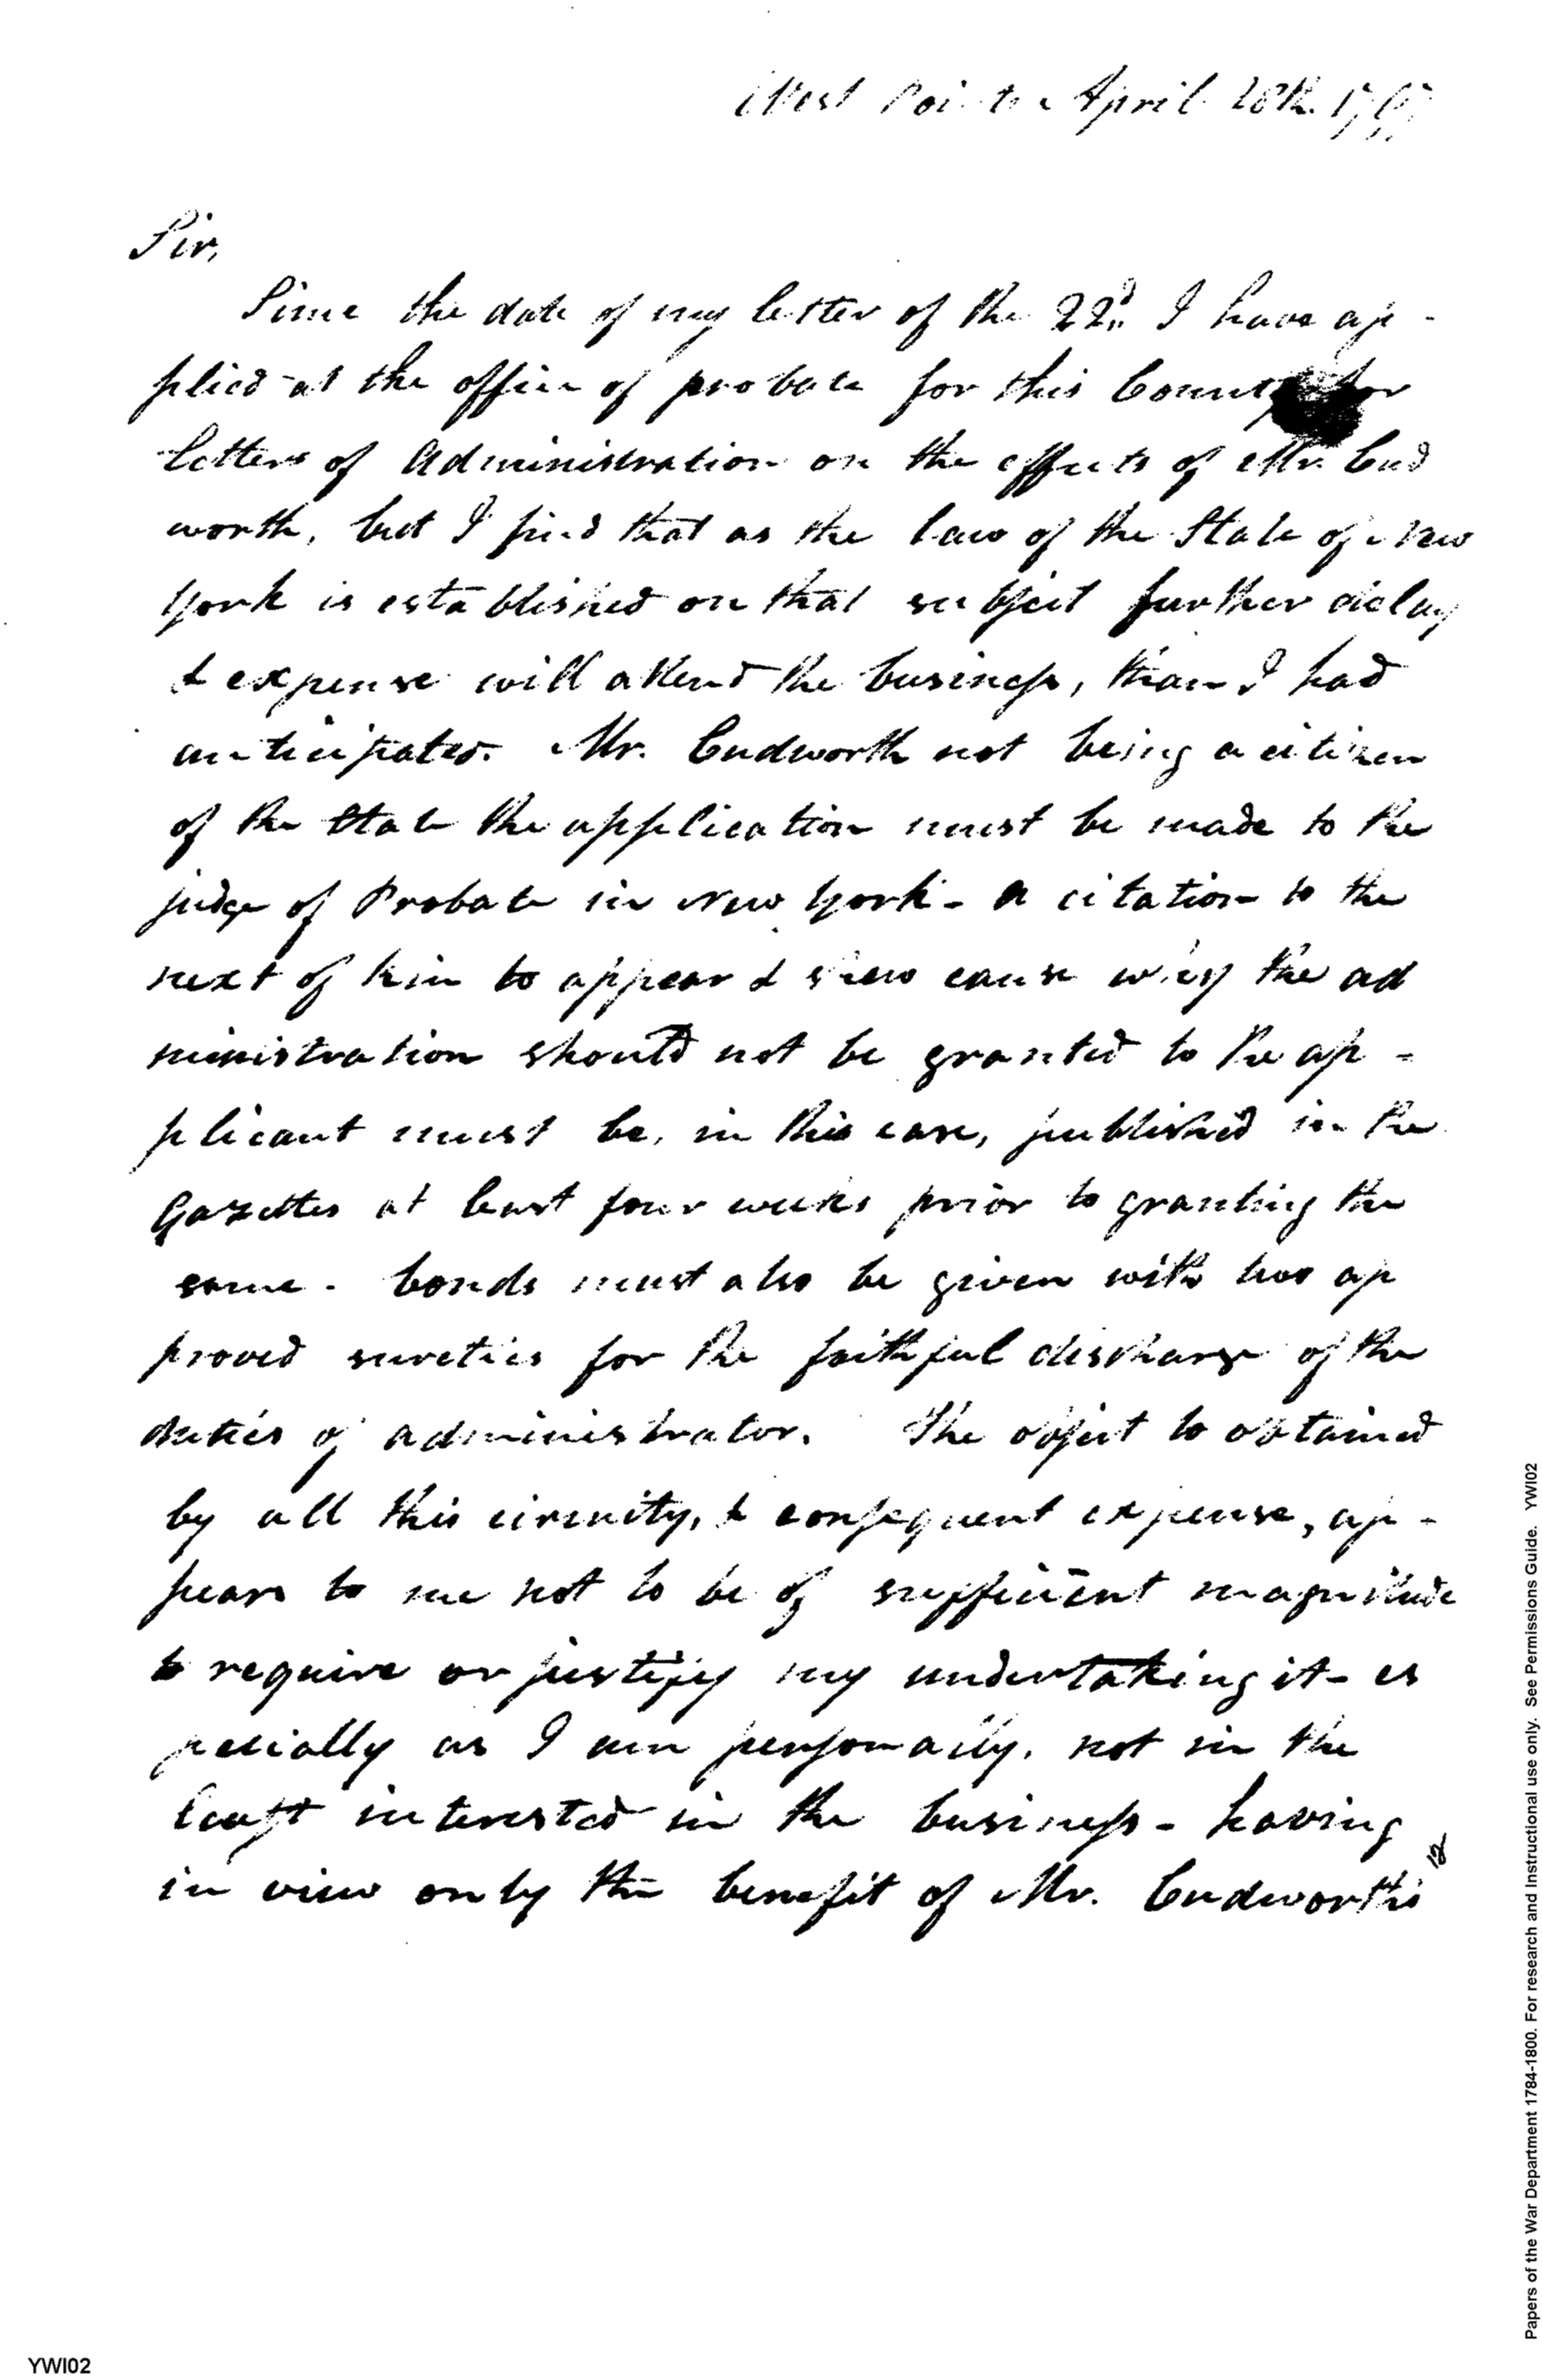 West Point April 28th. 1797
Sir,
Since the date of my letter of the 22d. I have ap-
plied at the office of probate for this County for
letters of Administration on the effects of Mr. Cud
worth, but I find that as the law of the State of New
York is established on that subject further delay
& expense will attend the business, than I had
anticipated. Mr. Cudworth not being a citizen
of the State the application must be made to the
judge of Probate in New York - A citation to the
next of kin to appear & shew cause why the ad
ministration should not be granted to the ap-
plicant must be, in this case, published in the
Gazettes at least four weeks prior to granting the
same - bonds must also be given with two ap
proved sureties for the faithful discharge of the
duties of administrator. The object to obtained
by all this circuity, & consequent expense, ap-
pears to me not to be of sufficient magnitude
to require or justify my undertaking it - es
pecially as I am personally, not in the
least interested in the business - having
in view only the benefit of Mr. Cudworth's
Papers of the War Department 1784-1800. For research and Instructional use only. See Permissions Guide. YWI02
YWI02